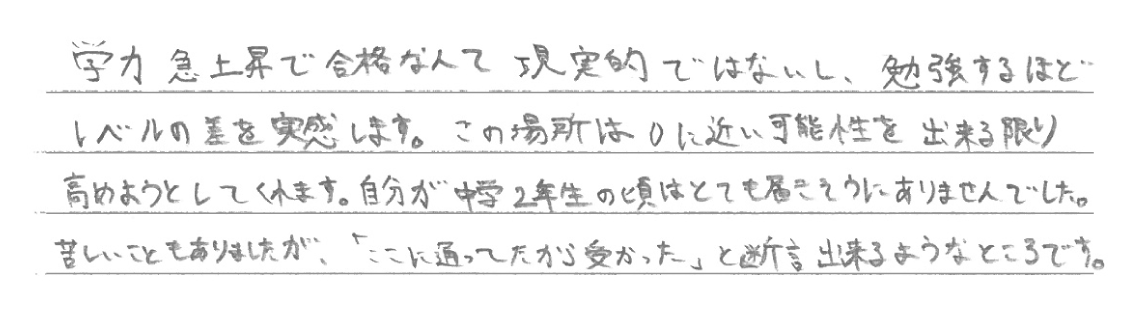 学力急上昇で合格なんて現実的ではないし、勉強するほど
レベルの差を実感します。この場所は0に近い可能性を出来る限り
高めようとしてくれます。自分が中学2年生の頃はとても届きそうにありませんでした。
苦しいこともありましたが、「ここに通ってたから受かった」と断言出来るようなところです。